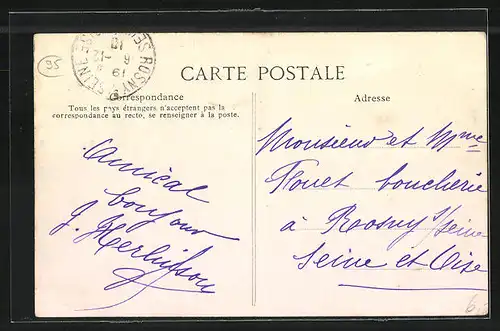 95
ROSNY S SEINE
CARTE POSTALE
Correspondance
Tous les pays étrangers n'acceptent pas la
correspondance au recto, se renseigner à la poste.
Amical
bonjour
Adresse
Monsieur et Mme
Flouet boucherie
à Roosny s/seine
Seine et Oise